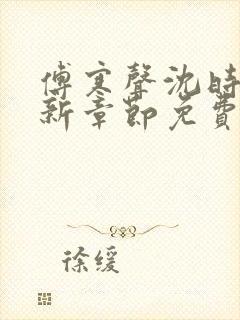 傅寒聲沈時
新章節免費
徐缓